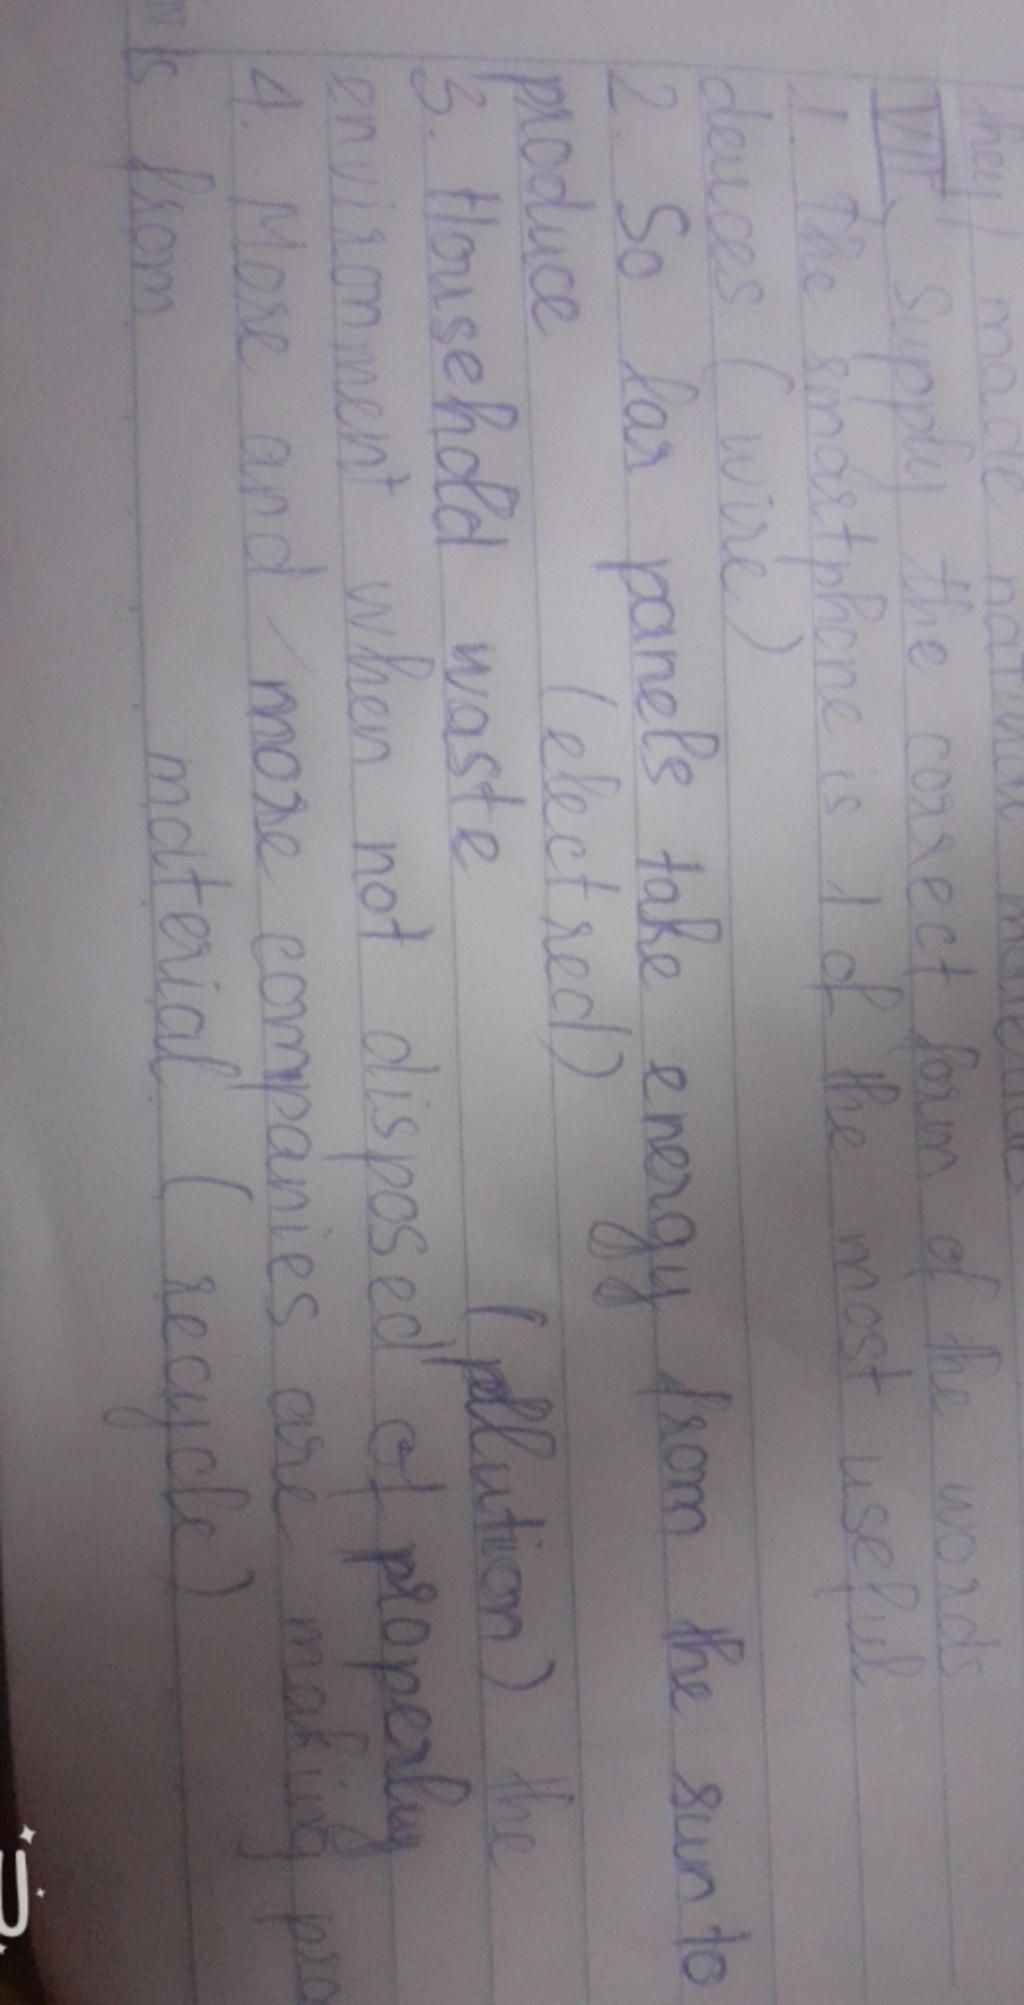 they / made natural materials
VIII. Supply the correct form of the words
1. The smartphone is 1 of the most useful
devices (wire)
2. So lar panels take energy from the sun to
produce (elect red)
3. Household waste (pollution) the
environment when not disposed of properly
4. More and more companies are making pro
is from material (recycle)